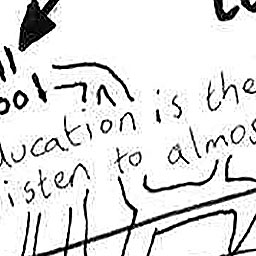 in
ducation is the
isten to almos